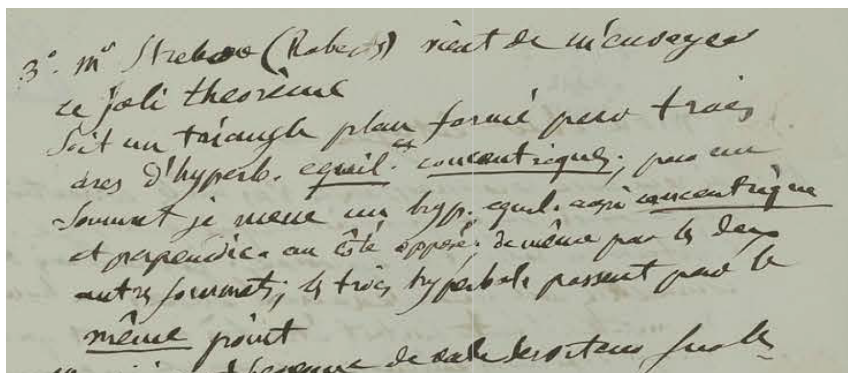 3°. Mr Strebor (Roberts) vient de m'envoyer
ce joli theorème
Soit un triangle plan formé par trois
arcs d'hyperb. equil. et concentriques; par un
sommet je mène un hyp. equil. aussi concentrique
et perpendic. au côté opposé; de même par les deux
autres sommets; les trois hyperboles passent par le
même point
de